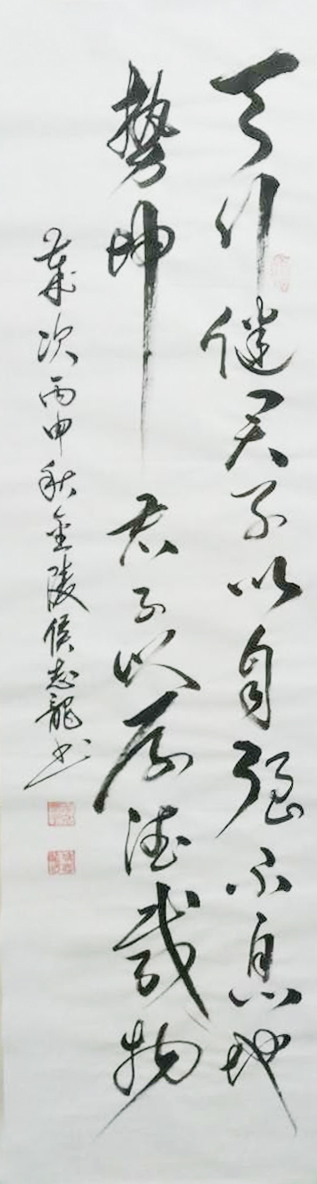 天行健君子以自强不息地
势坤君子以厚德载物
岁次丙申秋金陵侯志龙书